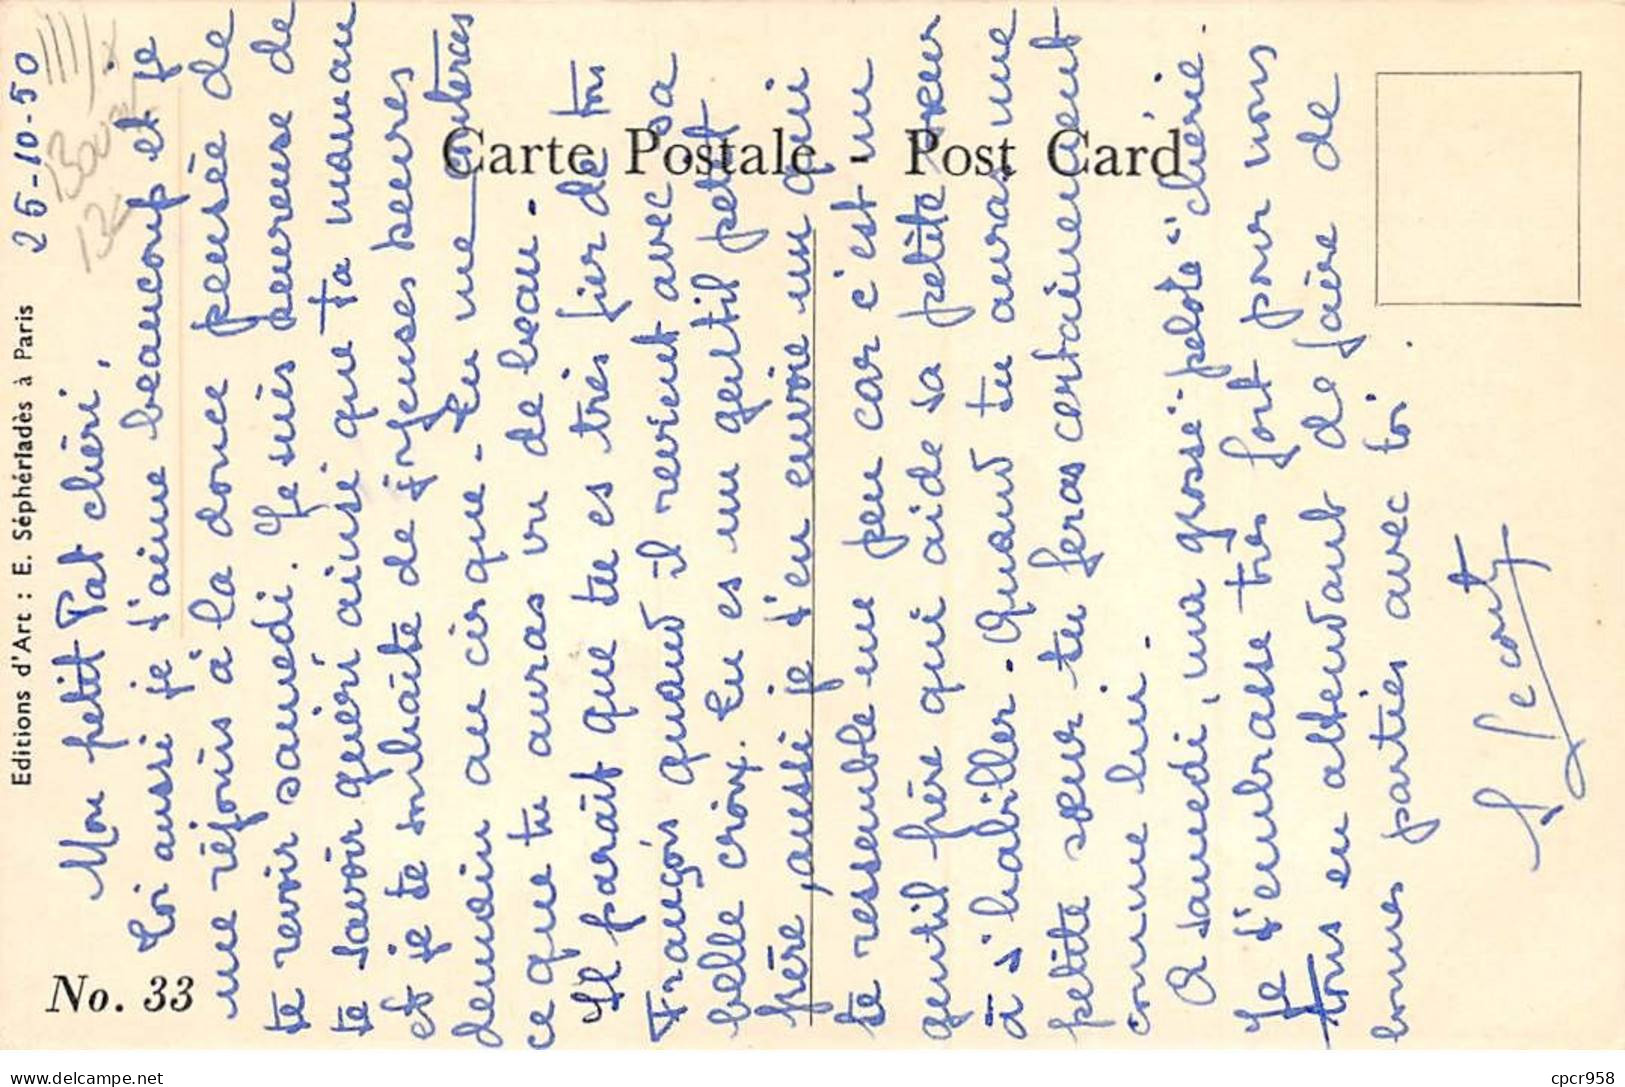 25-10-50
Mon petit Pat chéri,
Toi aussi je t'aime beaucoup et je
me réjouis à la douce pensée de
te revoir samedi. Je suis heureuse de
te savoir guéri ainsi que ta maman
et je te souhaite de joyeuses heures
demain au cirque - Tu me conteras
ce que tu auras vu de beau -
Il paraît que tu es très fier de ton
François quand il revient avec sa
belle croix. Tu es un gentil petit
frère, aussi je t'en envoie un qui
te ressemble un peu car c'est un
gentil frère qui aide sa petite sœur
à s'habiller. Quand tu auras une
petite sœur tu feras certainement
comme lui.
A samedi, ma grosse "pelote" chérie.
Je t'embrasse très fort pour nous
tous en attendant de faire de
bonnes parties avec toi.
Carte Postale - Post Card
Editions d'Art : E. Sépheriadès à Paris
No. 33
cpcr958